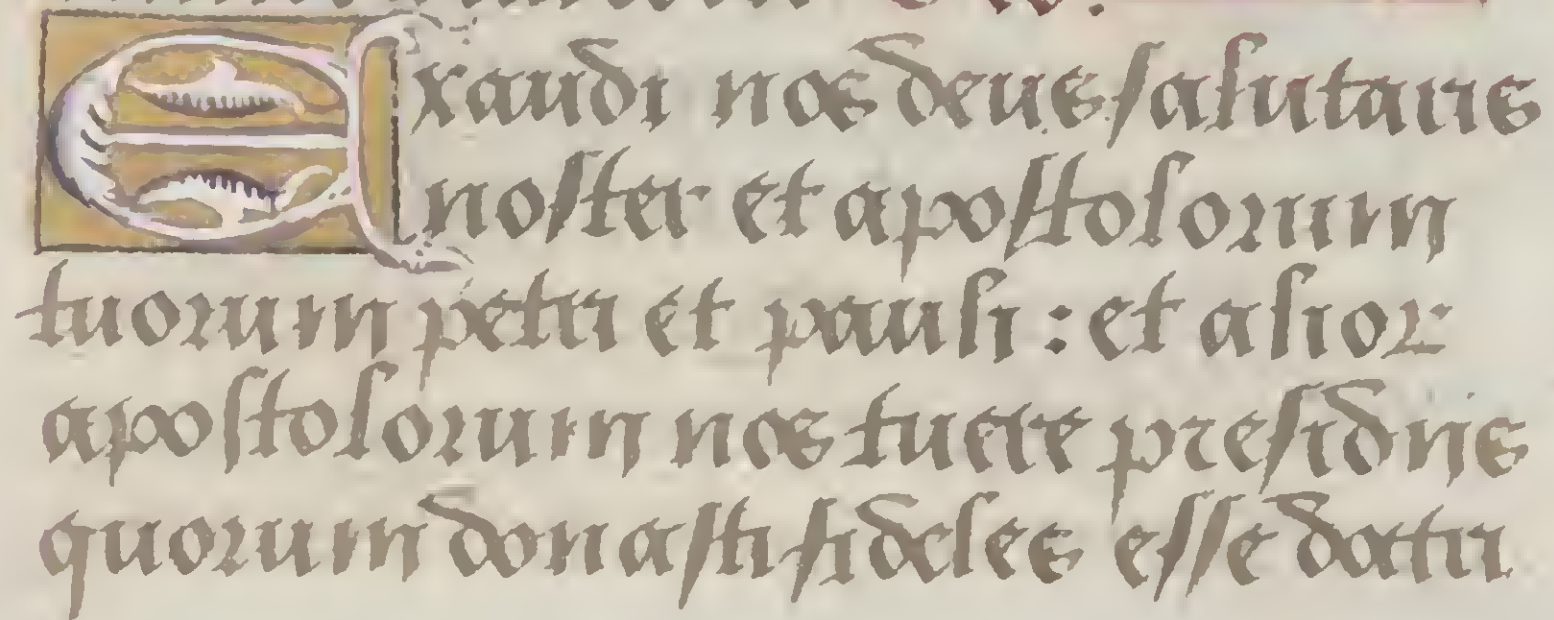 Exaudi nos deus salutaris
noster et apostolorum
tuorum petri et pauli : et alioꝝ
apostolorum nos tuere presidiis
quorum donasti fideles esse doctri